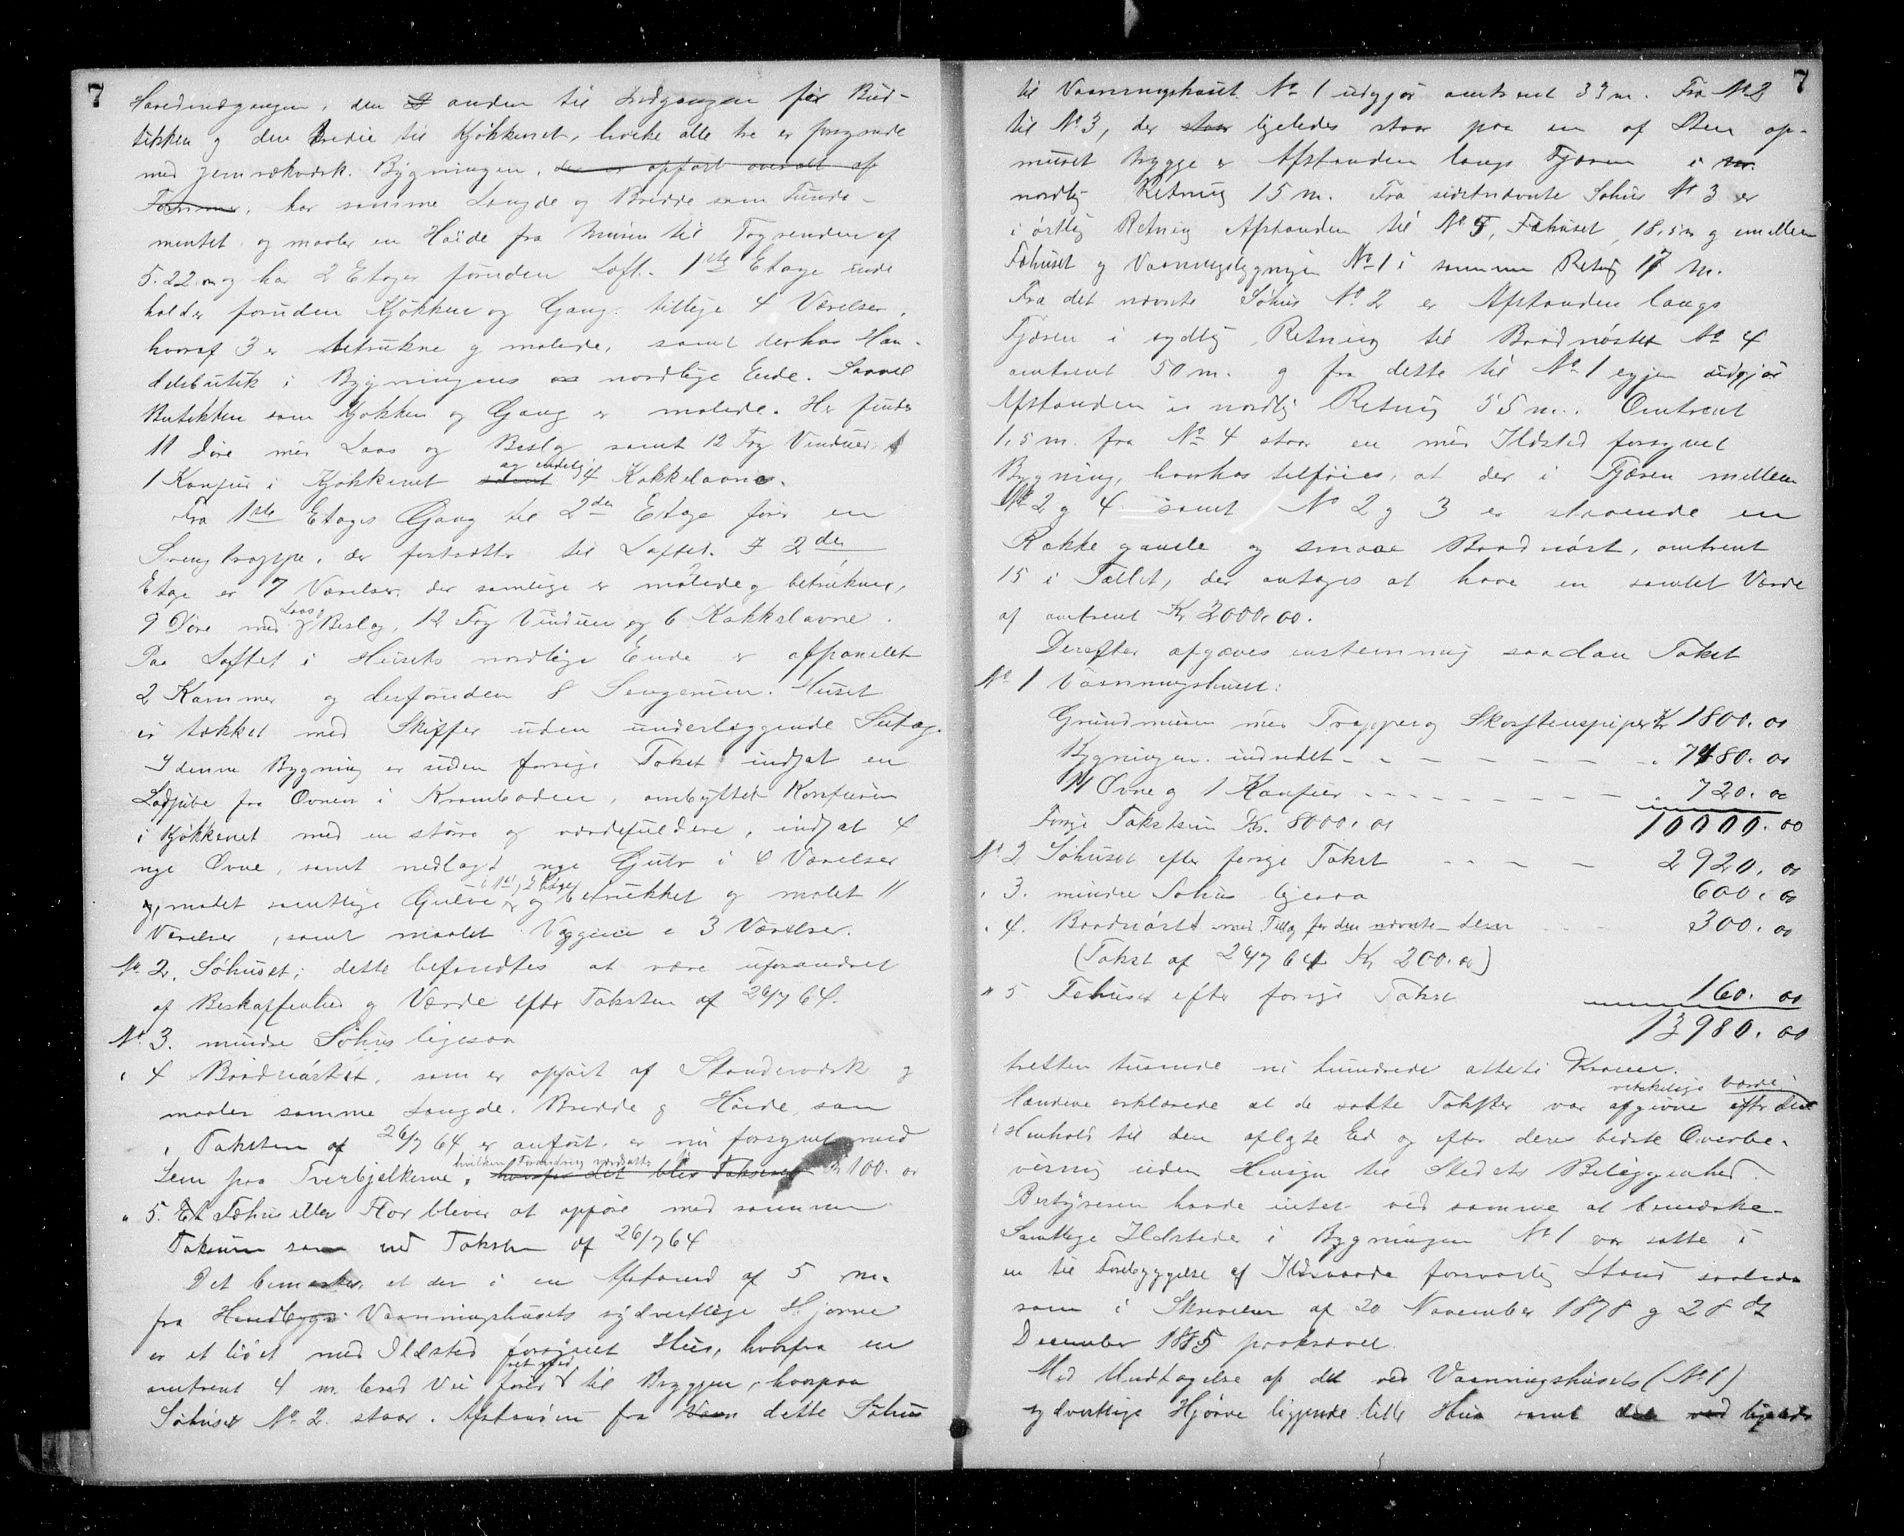 7
Hovedindgangen, den anden til Indgangen for Bud-
tikken og den tredie til Kjøkkenet, hvilke alle tre er forsynede
med Jernrækværk. Bygningen, der er opført overalt af
Tømmer, har samme Længde og Bredde som Funda-
mentet og maaler en Høide fra Muren til Tagrenden af
5.22 m og har 2 Etager foruden Loft. 1ste Etage inde
holder foruden Kjøkken og Gang tillige 4 Værelser,
hvoraf 3 er betrukne og malede, samt derhos Han-
delsbutik i Bygningens nordlige Ende. Saavel
Butikken som Kjøkken og Gang er malede. Her findes
11 Døre med Laas og Beslag samt 12 Fag Vinduer,
1 Komfur i Kjøkkenet samt og endelig 4 Kakkelovne.
Fra 1ste Etages Gang til 2den Etage fører en
Svingtrappe, der fortsætter til Loftet. I 2den
Etage er 7 Værelser, der samtlige er malede og betrukne,
9 Døre med Laas og Beslag, 12 Fag Vinduer og 6 Kakkelovne.
Paa Loftet i Husets nordlige Ende er afpanelet
2 Kammer og desforuden 8 Huset
er tækket med Skiffer uden underlæggende Sutag.
I denne Bygning er siden forrige Takst indsat en
fra Ovnen i Kramboden, ombyttet Komfuren
i Kjøkkenet med en større og værdifuldere, indsat 4
nye Ovne, samt nedlagt nye Gulv i 4 Værelser
og malet samtlige Gulve i 1st og 2 Etage og betrukket og malet 11
Værelser, samt malet Væggene i 3 Værelser.
No 2, Søhuset; dette befandtes at være uforandret
af Beskaffenhed og Værde efter Taksten af 26/7 64.
No 3. mindre Søhus ligesaa
" 4 Baadnøstet, som er opført af Standerværk og
maaler samme Længde, Bredde og Høide som
i Taksten af 26/7 64 er anført, er nu forsynet med
Lem paa Tverbjelkerne, hvilken Forandring værdsattes hvorfor det blev Taksered Kr 100. 00
" 5. Et Fæhus eller Flor bliver at opføre med samme
Taksum som ved Taksten af 26/7 64
Det bemærkes, at der i en Afstand af 5 m.
fra Vaaningshusets sydvestlige Hjørne
er et lidet med Ildsted forsynet Hus, hvorfra en
omtrent 4 m bred Vei fører til Bryggen, hvorpaa
Søhuset No 2 staar. Afstanden fra Vaan dette Søhus
7
til Vaaningshuset No 1 udgjør omtrent 33 m. Fra No 2
til No 3, der staar ligeledes staar paa en af Sten op-
muret Brygge er Afstanden langs Fjæren i
nordlig Retning 15 m. Fra sidstnævnte Søhus No 3 er
i østlig Retning Afstanden til No 5, Fæhuset, 18,5 m og imellem
Fæhuset og Vaaningsbygningen No 1 i samme Retng 17 m.
Fra det nævnte Søhus No 2 er Afstanden langs
Fjæren i sydlig Retning til Baadnøstet No 4
omtrent 50 m. og fra dette til No 1 igjen udgjør
Afstanden i nordlig Retning 55 m. Omtrent
1,5 m. fra No 4 staar en med Ildsted forsynet
Bygning, hvorhos tilføies, at der i Fjæren mellem
No 2 og 4 samt No 2 og 3 er staaende en
Række gamle og smaae Baadnøst, omtrent
15 i Tallet, der antages at have en samlet Værde
af omtrent Kr 2000,00.
Derefter afgaves enstemmig saadan Takst
No 1 Vaaningshuset:
Grundmuren med Trapper og Skorstenspiper Kr 1800. 00
Bygningen indredet - - - - - - " 7480. 00
14 Ovne og 1 Komfur - - - - - - 720. 00
Forrige Takstsum Kr. 8000. 00 10000. 00
No 2 Søhuset efter forrige Takst - - - - 2920. 00
" 3. mindre Søhus ligesaa 600. 00
" 4. Baadnøstet med Tillæg for den nævnte Lem 300. 00
(Takst af 26/7 64 Kr 200. 00)
" 5 Fæhuset efter forrige Takst 160. 00
13980. 00
tretten tusinde ni hundrede otteti Kroner.
Mændene erklærede at de satte Takster var afgivne efter den virkelige Værdi
i Henhold til den aflagte Ed og efter deres bedste Overbe-
visning uden Hensyn til Stedets Beliggenhed.
Bestyreren havde intet ved samme at bemærke.
Samtlige Ildstede i Bygningen No 1 var satte i
en til Forebyggelse af Ildsvaade forsvarlig Stand saaledes
som i Skrivelser af 20 November 1878 og 28 de
December 1885 paakrævet.
Med Undtagelse af det ved Vaaningshusets (No 1)
sydvestlige Hjørne liggende lille Hus samt det ved ligeledes